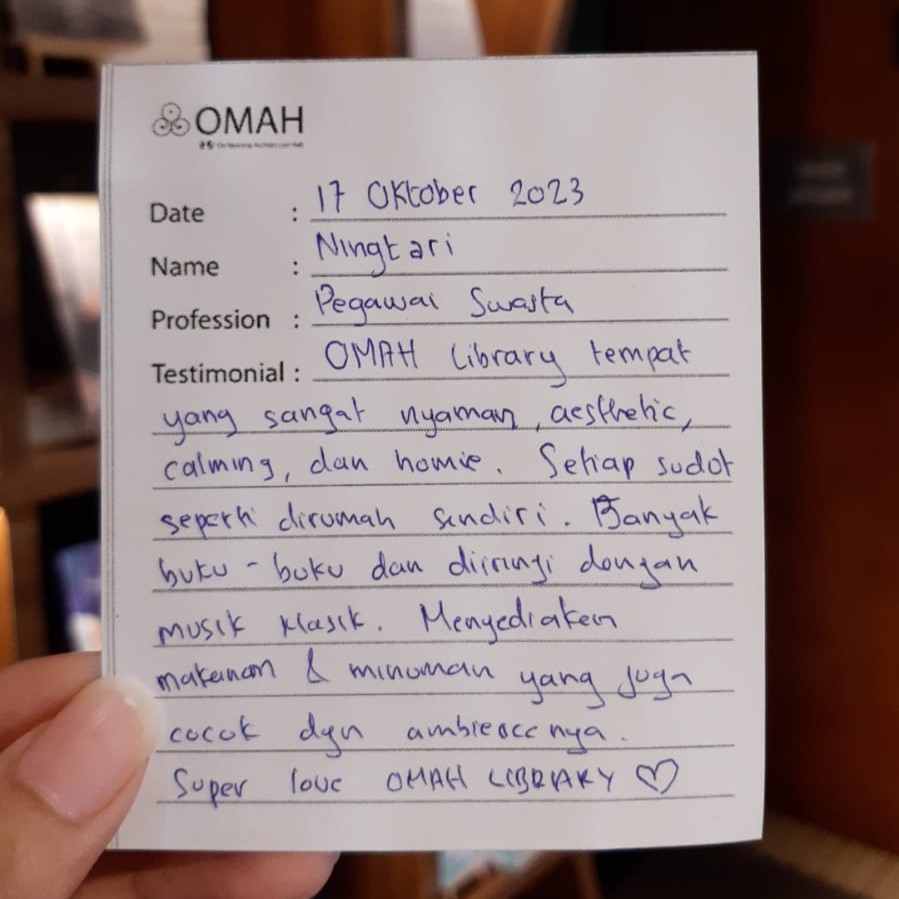 OMAH
Date : 17 Oktober 2023
Name : Ningtari
Profession : Pegawai Swasta
Testimonial : OMAH Library tempat
yang sangat nyaman, aesthetic,
calming, dan homie. Setiap sudot
seperti dirumah sendiri. Banyak
buku - buku dan diiringi dengan
musik klasik. Menyediakan
makanan & minuman yang juga
cocok dgn ambience nya.
Super love OMAH LIBRARY ♡